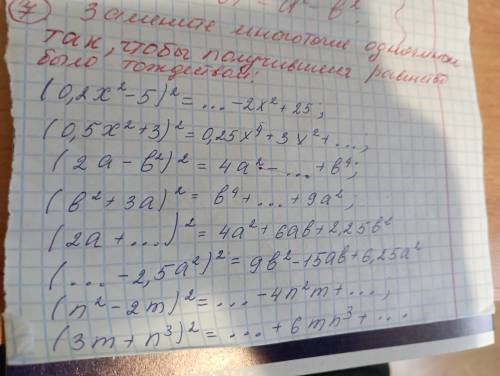 7 Замените многоточие одночленом
так, чтобы получившееся равенство
было тождеством:
(0,2x²-5)² = ... -2x²+25;
(0,5x²+3)² = 0,25x⁴+3x²+...;
(2a-в²)² = 4a²-...+в⁴;
(в²+3a)² = в⁴+...+9a²;
(2a+...)² = 4a²+6aв+2,25в²
(... -2,5a²)² = 9в²-15aв+6,25a²
(n²-2m)² = ... -4n²m+...;
(3m+n³)² = ... +6mn³+...